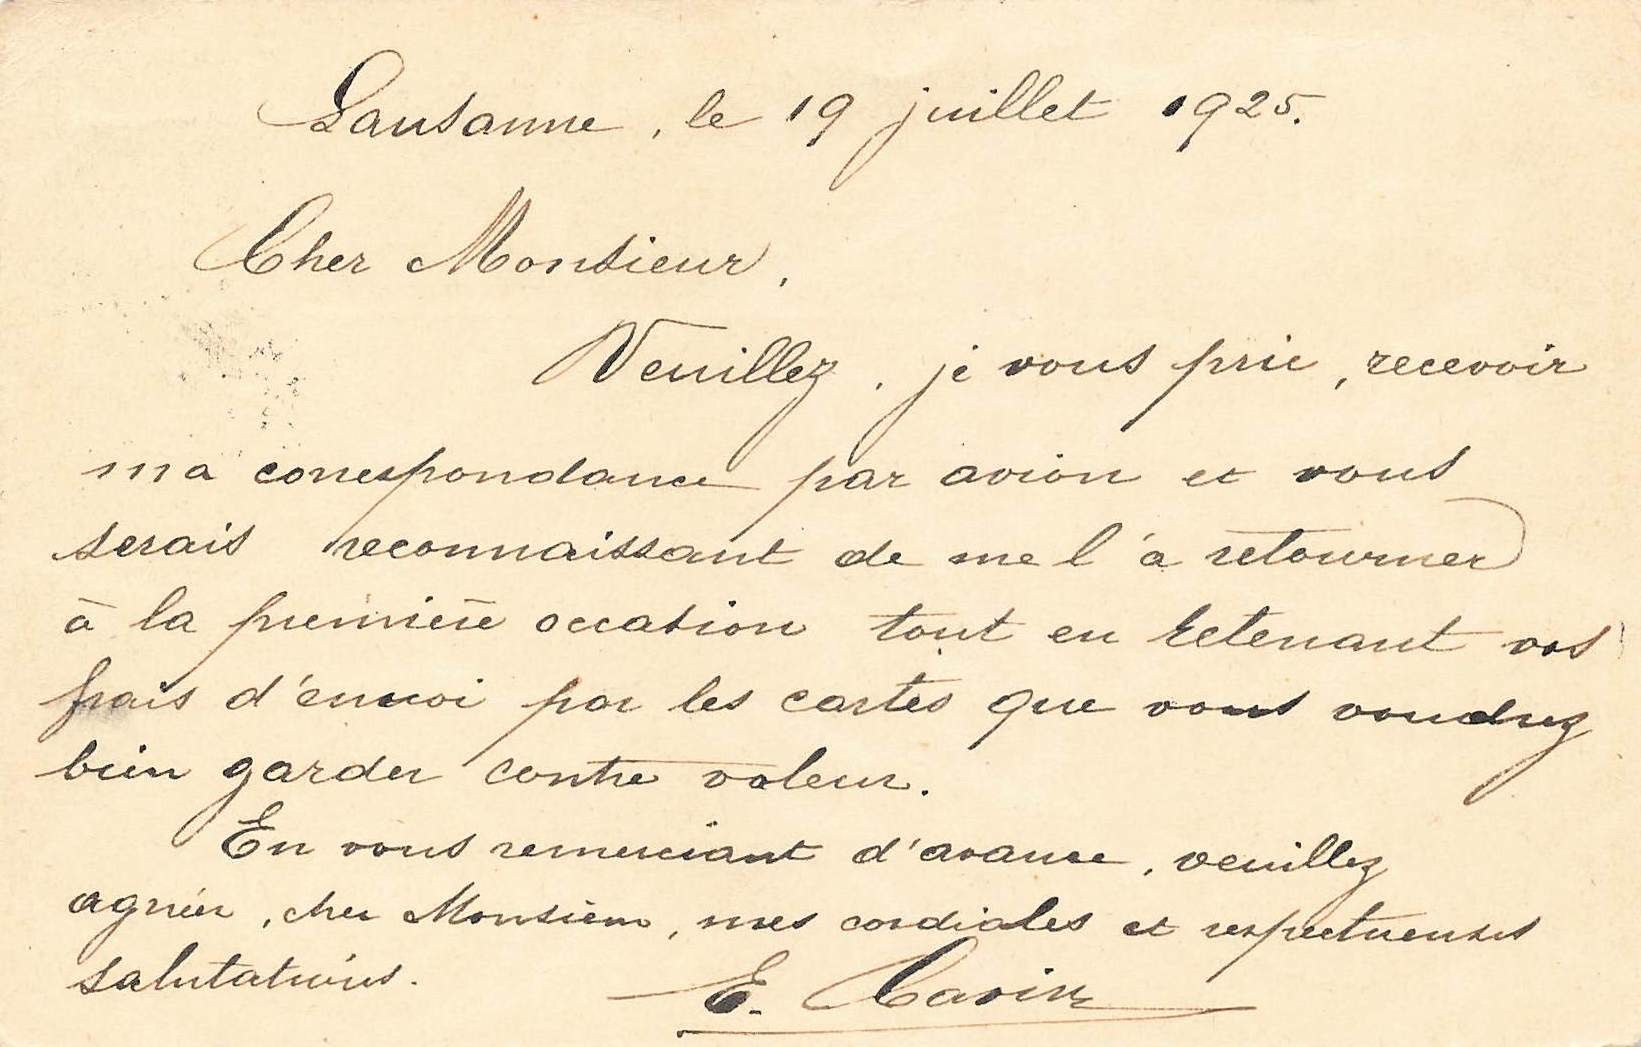 Lausanne, le 19 juillet 1925.
Cher Monsieur,
Veuillez, je vous prie, recevoir
ma correspondance par avion et vous
serais reconnaissant de me l'a retourner
à la première occasion tout en retenant vos
frais d'envoi par les cartes que vous voudrez
bien garder contre valeur.
En vous remerciant d'avance, veuillez
agréer, cher Monsieur, mes cordiales et respectueuses
salutations.
E. Cavin